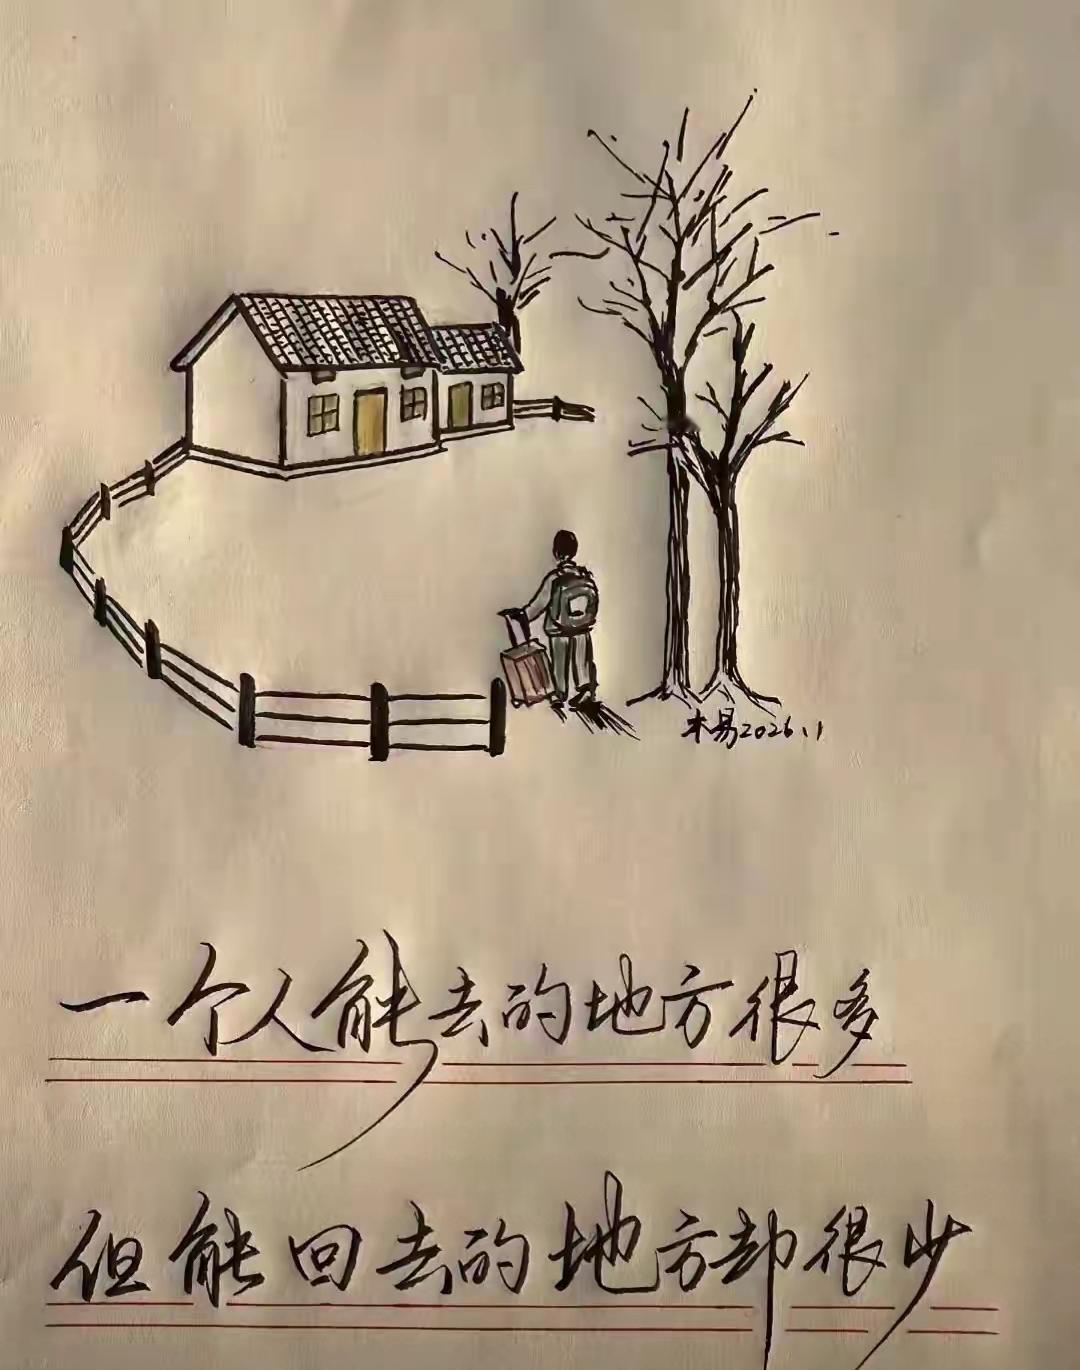 木易2026.1
一个人能去的地方很多
但能回去的地方却很少